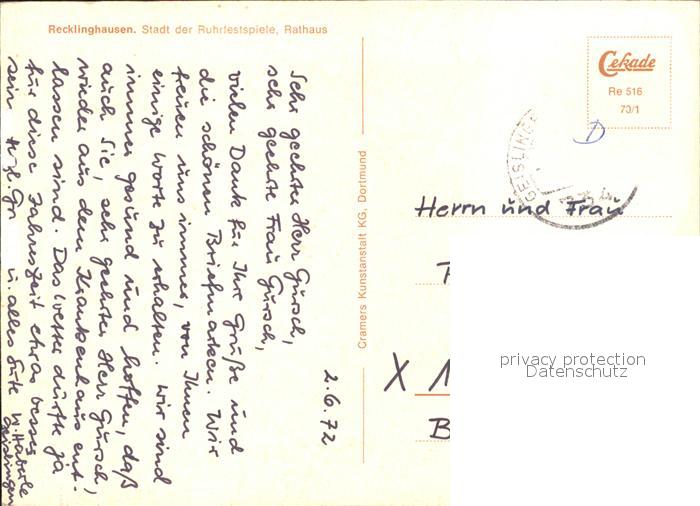 Recklinghausen. Stadt der Ruhrfestspiele, Rathaus
2.6.72
Sehr geehrter Herr Gursch,
sehr geehrte Frau Gursch,
vielen Dank für Ihre Grüße und
die schönen Briefmarken. Wir
freuen uns immer, von Ihnen
einige Worte zu erhalten. Wir sind
immer gesund und hoffen, daß
auch Sie, sehr geehrter Herr Gursch,
wieder aus dem Krankenhaus ent-
lassen sind. Das Wetter dürfte ja
für diese Jahreszeit etwas besser
sein. Hzl. Gr. u. alles Gute
W. Häberle
Geislingen
Cramers Kunstanstalt KG, Dortmund
Cekade
Re 516
70/1
D
GEISLINGE
Herrn und Frau
X 1
B
privacy protection
Datenschutz